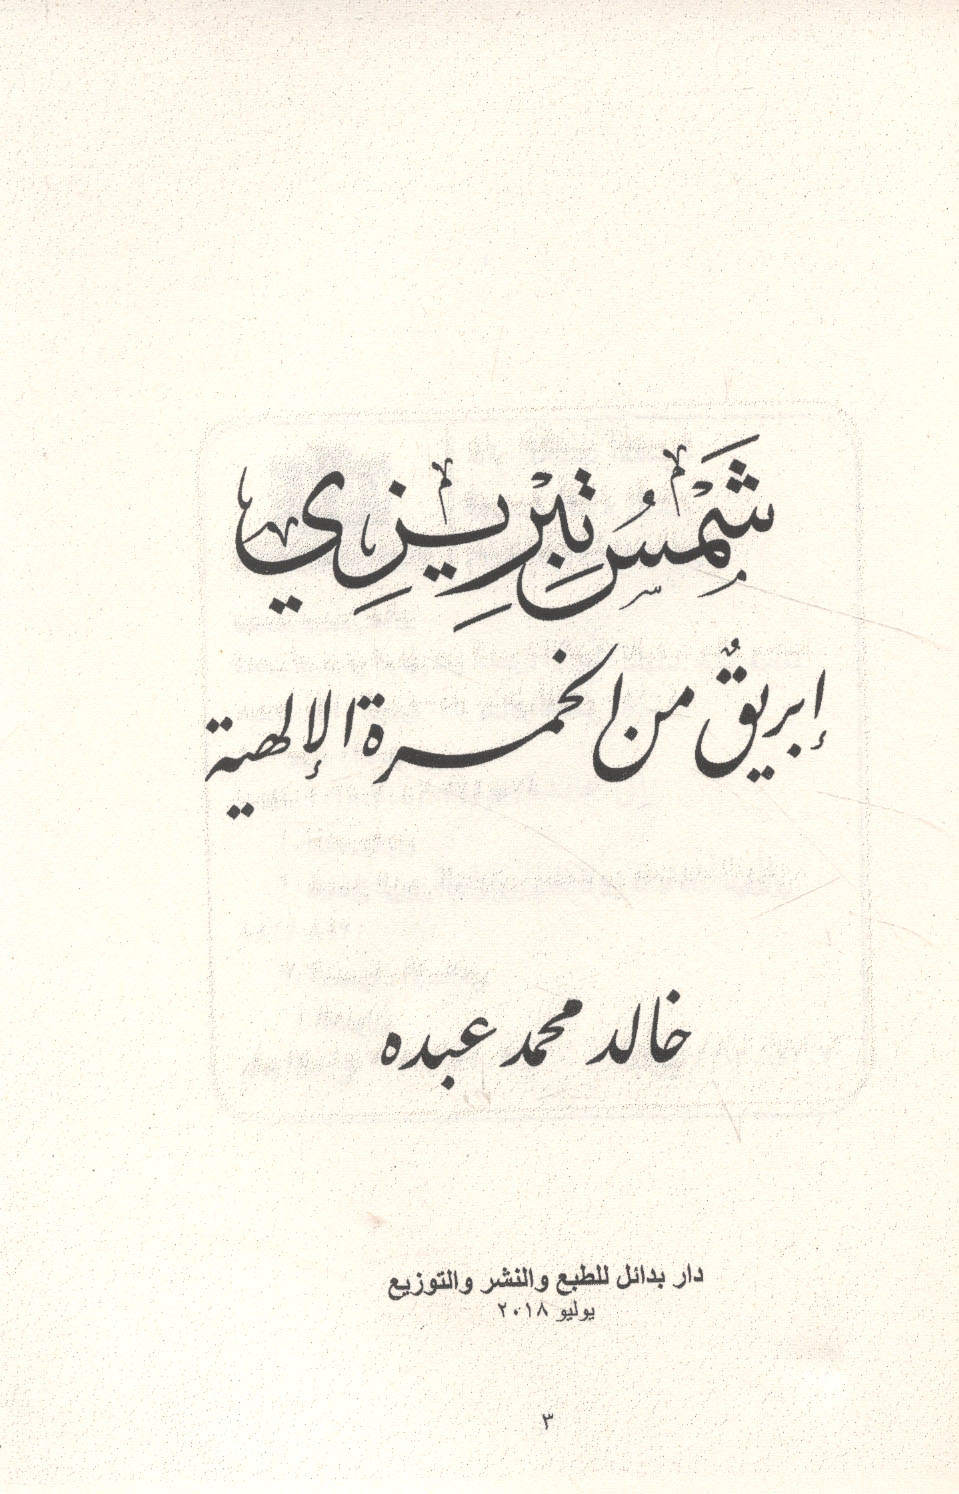 شَمْسُ تِبْرِيزِي
إبريقٌ من الخمرة الإلهية
خالد محمد عبده
دار بدائل للطبع والنشر والتوزيع
يوليو ٢٠١٨
٣